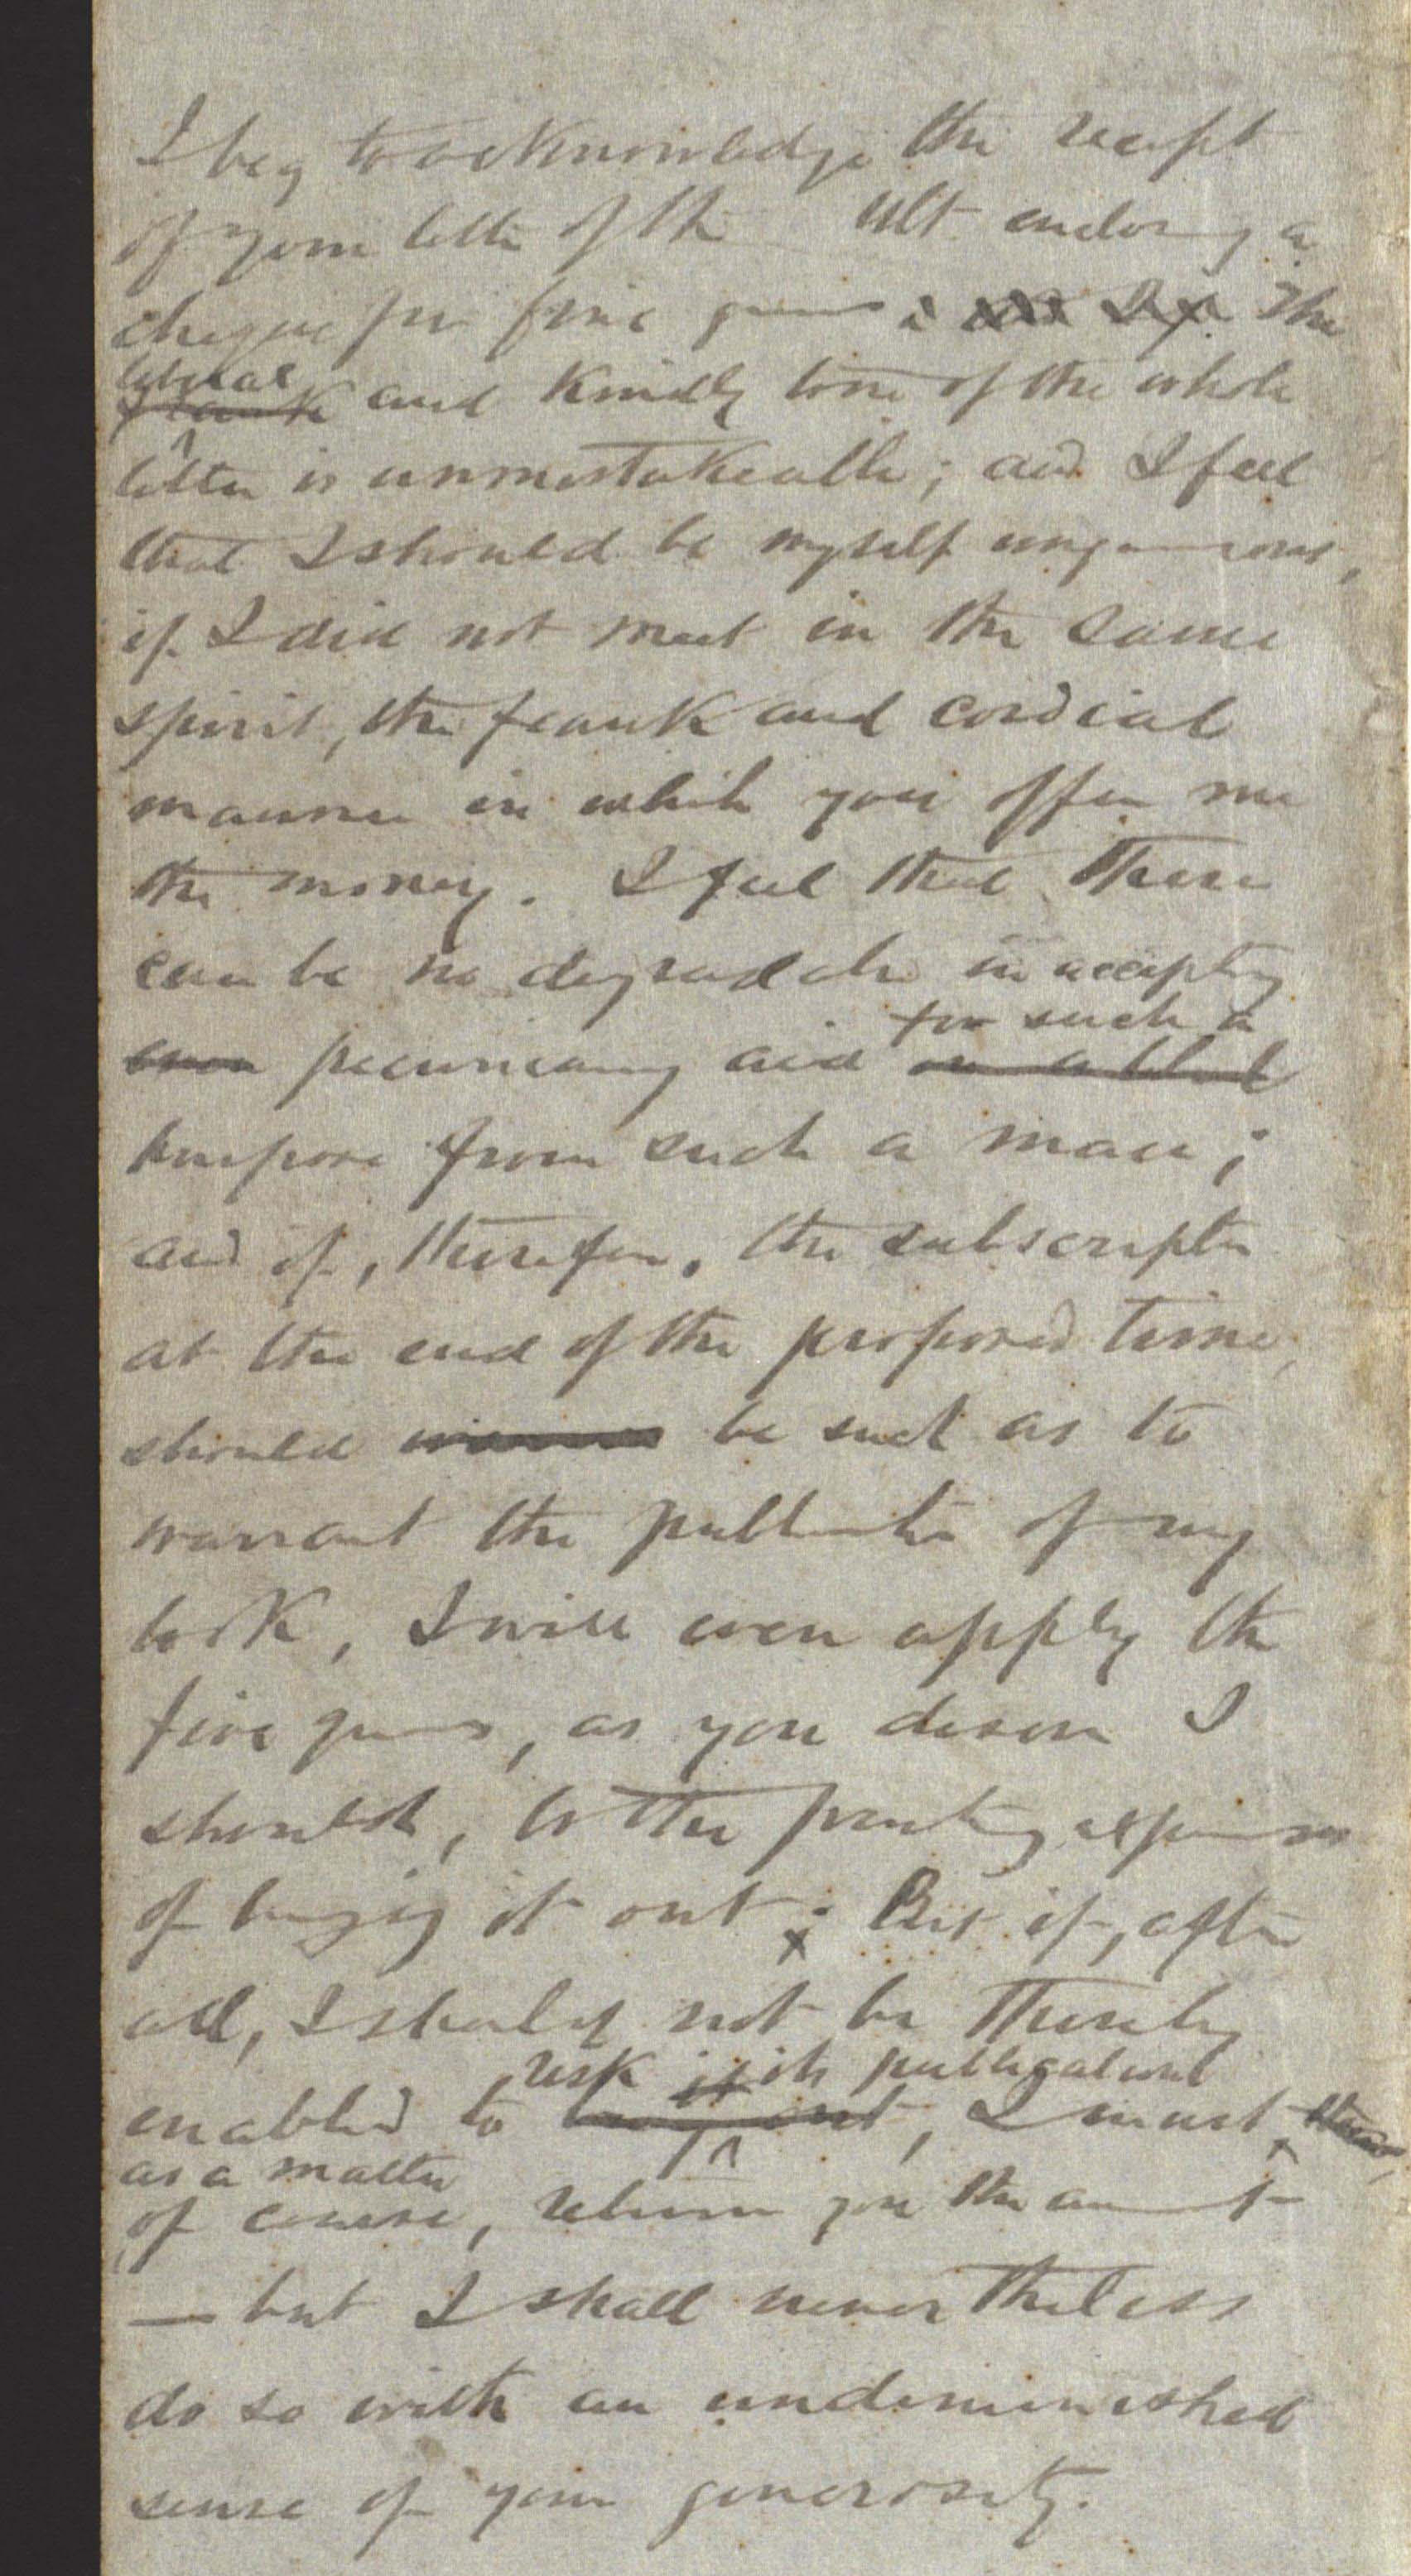 I beg to acknowledge the receipt
of your letter of the ult enclosing a
cheque for five guineas; The
liberal
frank and kindly tone of the whole
letter is unmistakeable; and I feel
that I should be myself ungenerous,
if I did not meet in the same
spirit, the frank and cordial
manner in which you offer me
the money. I feel that there
can be no degradation in accepting
for such a
even pecuniary aid
purpose from such a man;
and if, therefore, the subscription
at the end of the proposed time,
should be such as to
warrant the publication of my
book, I will even apply the
five guineas, as you desire I
should, to the printing expenses
of bringing it out; But if, after
all, I should not be thereby
risk it its publication
enabled to bring it out, I must, then,
as a matter
of course, return you the amount
— but I shall nevertheless
do so with an undiminished
sense of your generosity.